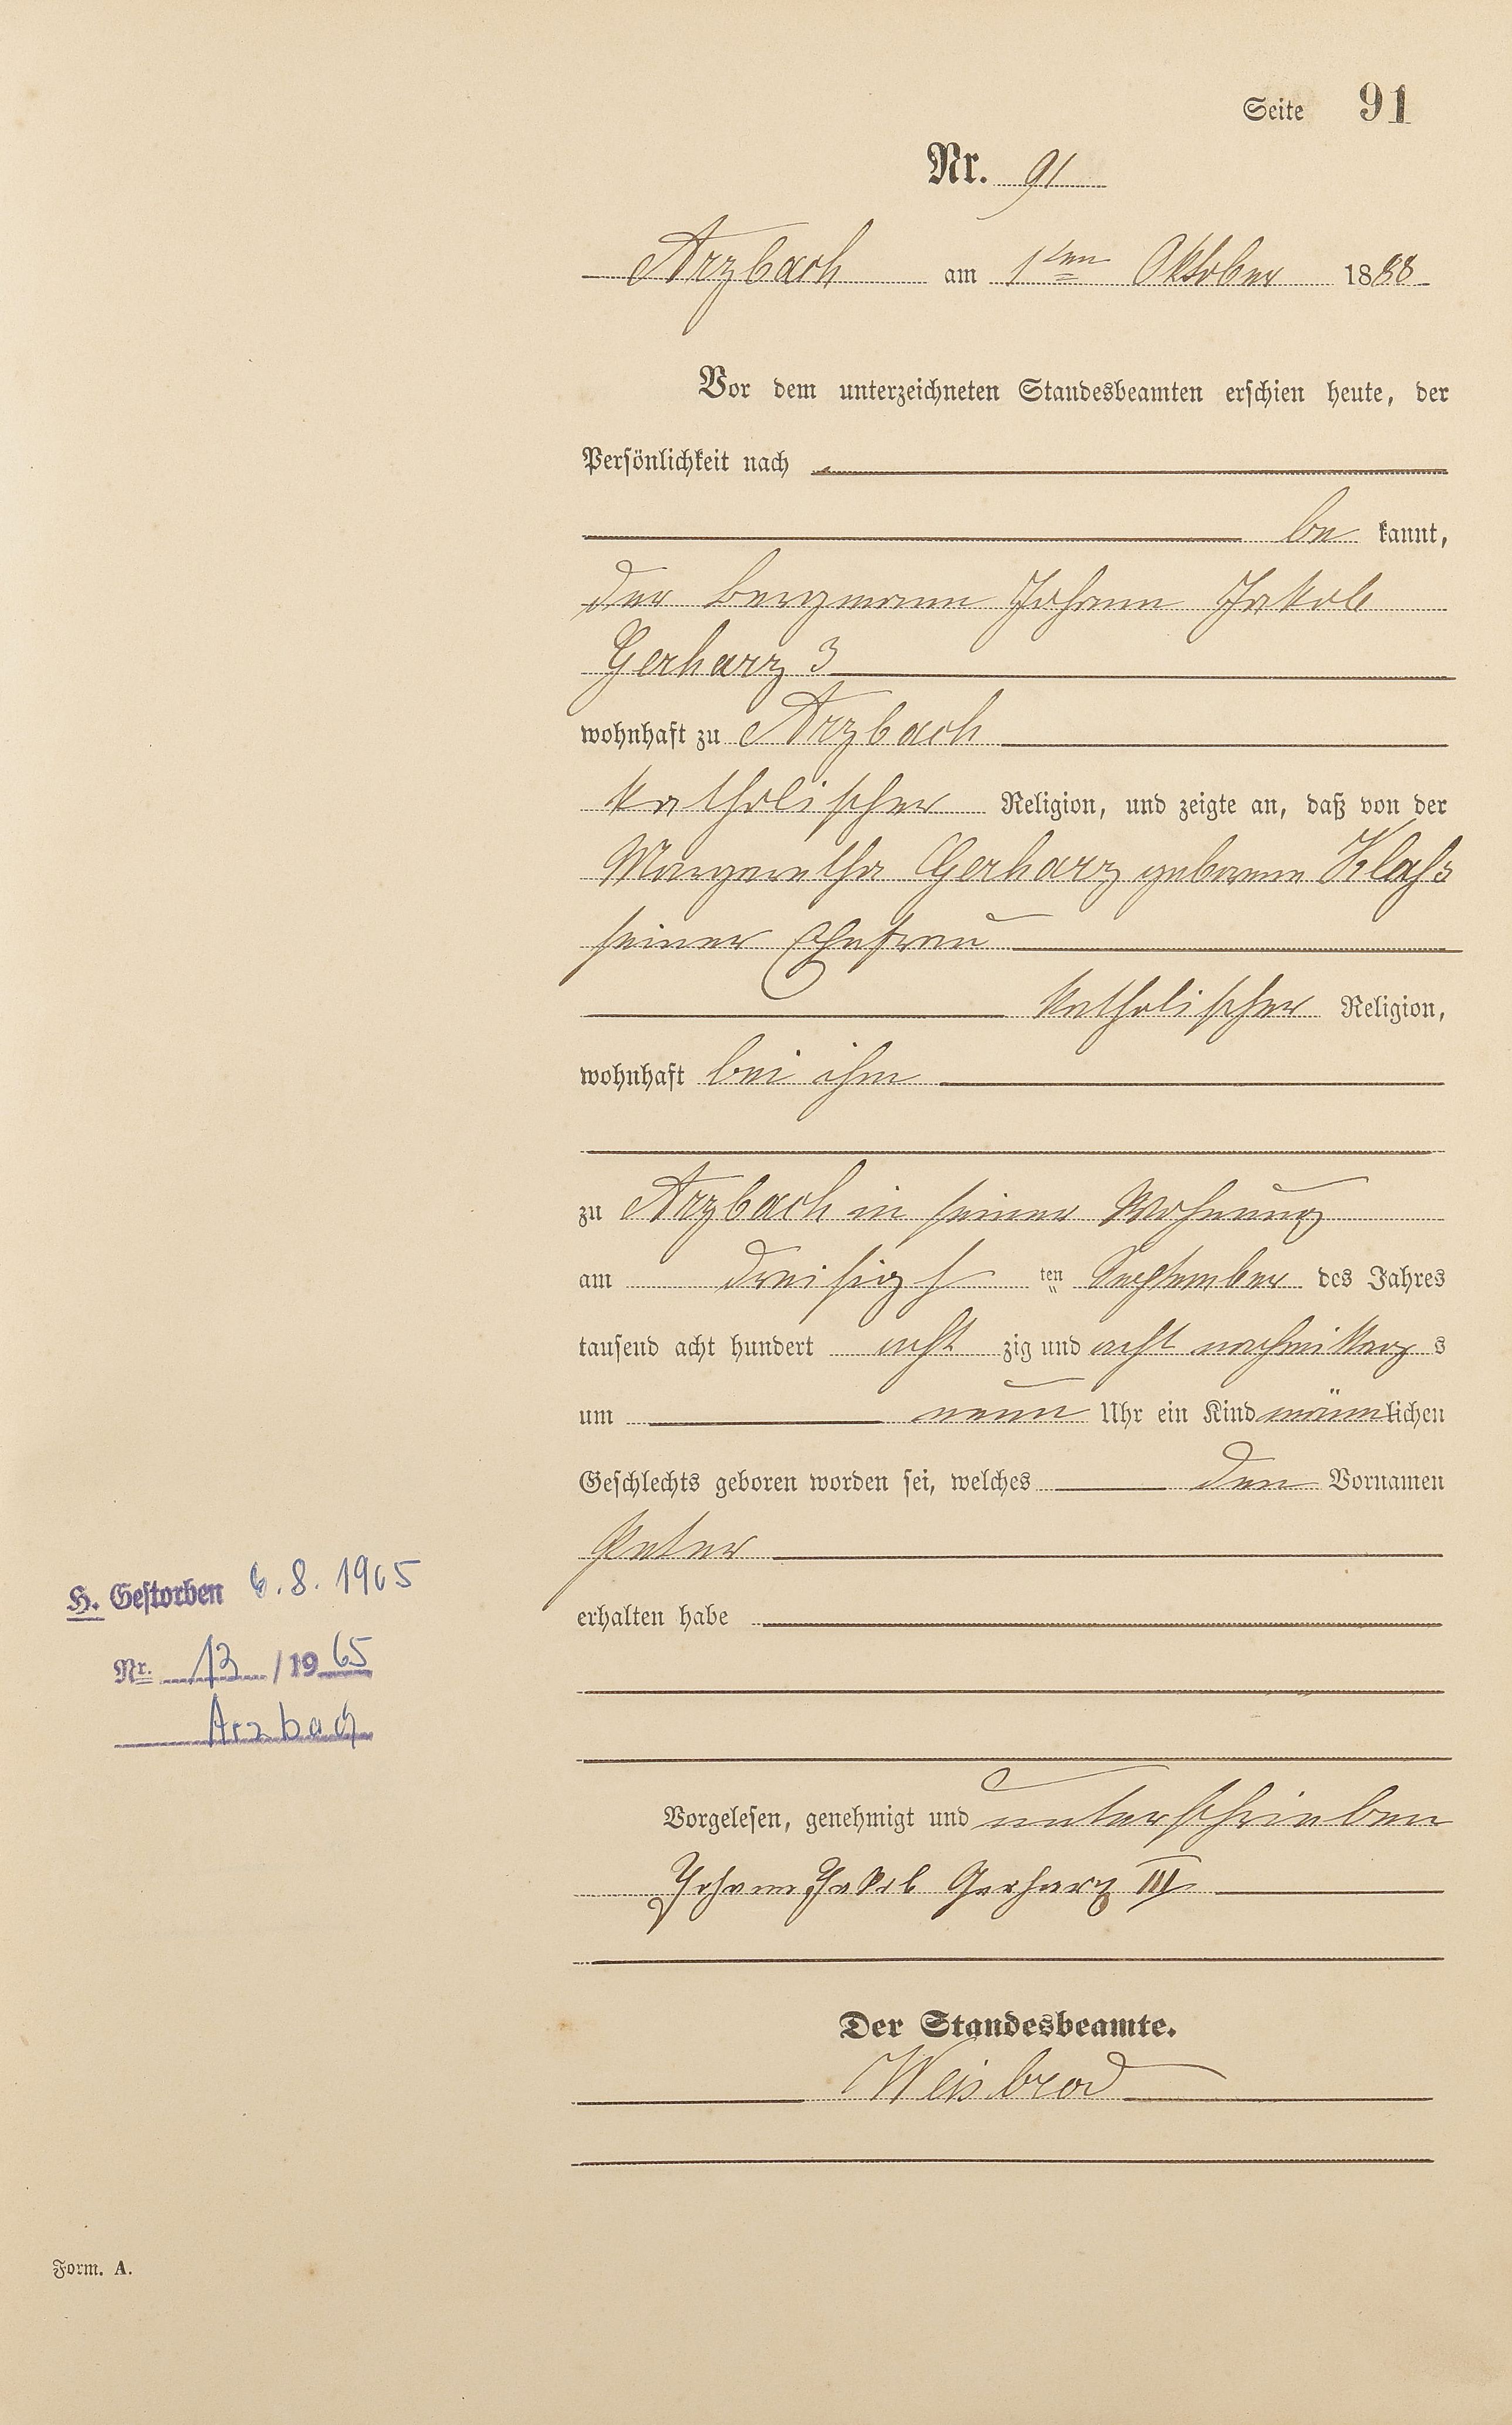 Seite 91
Nr. 91
Arzbach am 1ten Oktober 1888
Vor dem unterzeichneten Standesbeamten erschien heute, der
Persönlichkeit nach
be kannt,
der Bergmann Johann Jakob
Gerharz 3
wohnhaft zu Arzbach
katholischer Religion, und zeigte an, daß von der
Margaretha Gerharz geborene Klaß
seiner Ehefrau
katholischer Religion,
wohnhaft bei ihm
zu Arzbach in seiner Wohnung
am dreisigs ten September des Jahres
tausend acht hundert acht zig und acht nachmittag s
um neun Uhr ein Kind männlichen
Geschlechts geboren worden sei, welches den Vornamen
Peter
erhalten habe
H. Gestorben 6.8.1965
Nr. 13 / 19 65
Arzbach
Vorgelesen, genehmigt und unterschrieben
Johann Jakob Gerharz III
Der Standesbeamte.
Weisbrod
Form. A.